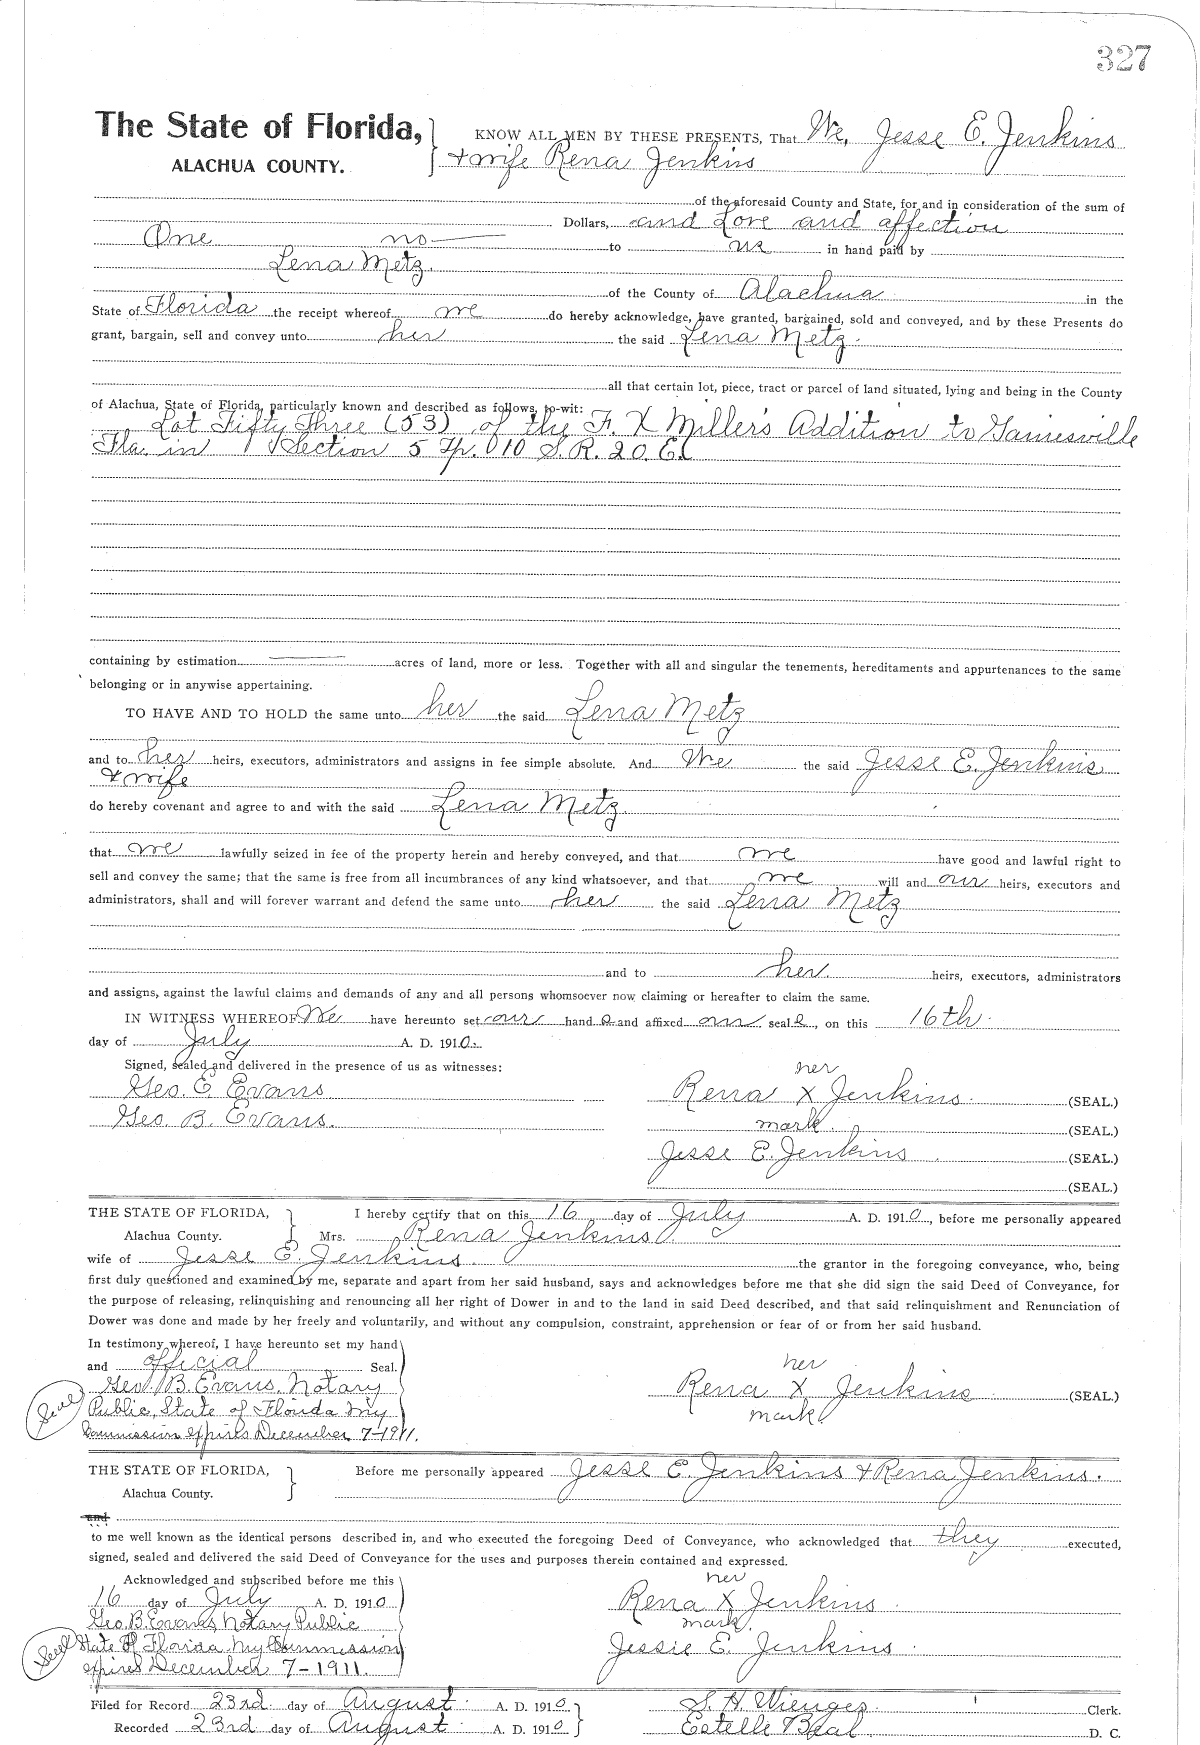 327
The State of Florida, KNOW ALL MEN BY THESE PRESENTS, That We, Jesse E. Jenkins
ALACHUA COUNTY. + wife Rena Jenkins
of the aforesaid County and State, for and in consideration of the sum of
One no Dollars, and Love and affection
to us in hand paid by
Lena Metz.
of the County of Alachua in the
State of Florida the receipt whereof we do hereby acknowledge, have granted, bargained, sold and conveyed, and by these Presents do
grant, bargain, sell and convey unto her the said Lena Metz.
all that certain lot, piece, tract or parcel of land situated, lying and being in the County
of Alachua, State of Florida, particularly known and described as follows, to-wit:
Lot Fifty Three (53) of the F. X Miller's Addition to Gainesville
Fla. in Section 5 Tp. 10 S. R. 20 E.
containing by estimation acres of land, more or less. Together with all and singular the tenements, hereditaments and appurtenances to the same
belonging or in anywise appertaining.
TO HAVE AND TO HOLD the same unto her the said Lena Metz
and to her heirs, executors, administrators and assigns in fee simple absolute. And We the said Jesse E. Jenkins
+ wife
do hereby covenant and agree to and with the said Lena Metz.
that we lawfully seized in fee of the property herein and hereby conveyed, and that we have good and lawful right to
sell and convey the same; that the same is free from all incumbrances of any kind whatsoever, and that we will and our heirs, executors and
administrators, shall and will forever warrant and defend the same unto her the said Lena Metz
and to her heirs, executors, administrators
and assigns, against the lawful claims and demands of any and all persons whomsoever now claiming or hereafter to claim the same.
IN WITNESS WHEREOF We have hereunto set our hand s and affixed our seal s, on this 16th.
day of July A. D. 1910.
Signed, sealed and delivered in the presence of us as witnesses:
her
Geo. E Evans Rena X Jenkins. (SEAL.)
Geo B. Evans. mark. (SEAL.)
Jesse E. Jenkins (SEAL.)
(SEAL.)
THE STATE OF FLORIDA, I hereby certify that on this 16 day of July A. D. 1910, before me personally appeared
Alachua County. Mrs. Rena Jenkins
wife of Jesse E. Jenkins. the grantor in the foregoing conveyance, who, being
first duly questioned and examined by me, separate and apart from her said husband, says and acknowledges before me that she did sign the said Deed of Conveyance, for
the purpose of releasing, relinquishing and renouncing all her right of Dower in and to the land in said Deed described, and that said relinquishment and Renunciation of
Dower was done and made by her freely and voluntarily, and without any compulsion, constraint, apprehension or fear of or from her said husband.
In testimony whereof, I have hereunto set my hand
and official Seal. her
Geo. B. Evans. Notary Rena X Jenkins (SEAL.)
Seal Public, State of Florida My mark
Commission expires December 7-1911.
THE STATE OF FLORIDA, Before me personally appeared Jesse E. Jenkins + Rena Jenkins.
Alachua County.
and
to me well known as the identical persons described in, and who executed the foregoing Deed of Conveyance, who acknowledged that they executed,
signed, sealed and delivered the said Deed of Conveyance for the uses and purposes therein contained and expressed.
Acknowledged and subscribed before me this her
16 day of July A. D. 1910 Rena X Jenkins
Geo. B. Evans Notary Public mark.
Seal State of Florida My Commission Jessie E. Jenkins
expires December 7-1911.
Filed for Record 23rd. day of August. A. D. 1910 S. H. Wienges. Clerk.
Recorded 23rd day of August A. D. 1910 Estelle Beal. D. C.